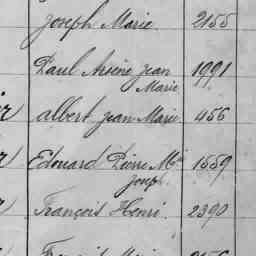 Joseph Marie 2155
Paul Arsène Jean 1991
Marie
albert Jean Marie 456
Edouard Pierre Mie 1559
Joseph
François Henri 2390